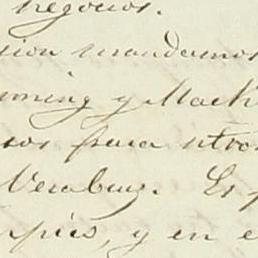 negocios.
sion mandamos
ming y Mack
sos para otros
Veracruz. Es p
pies, y en e